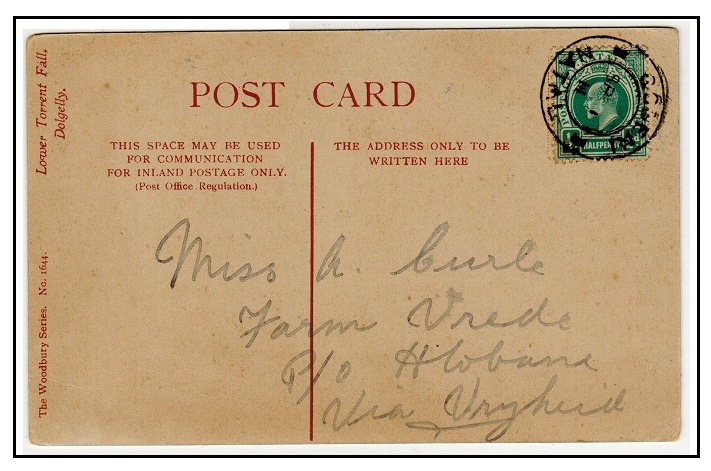 POST CARD
THIS SPACE MAY BE USED
FOR COMMUNICATION
FOR INLAND POSTAGE ONLY.
(Post Office Regulation.)
THE ADDRESS ONLY TO BE
WRITTEN HERE
Lower Torrent Fall,
Dolgelly.
The Woodbury Series. No. 1644.
HALFPENNY
Miss A. Curle
Farm Vrede
P/o Hlobane
Via Vryheid